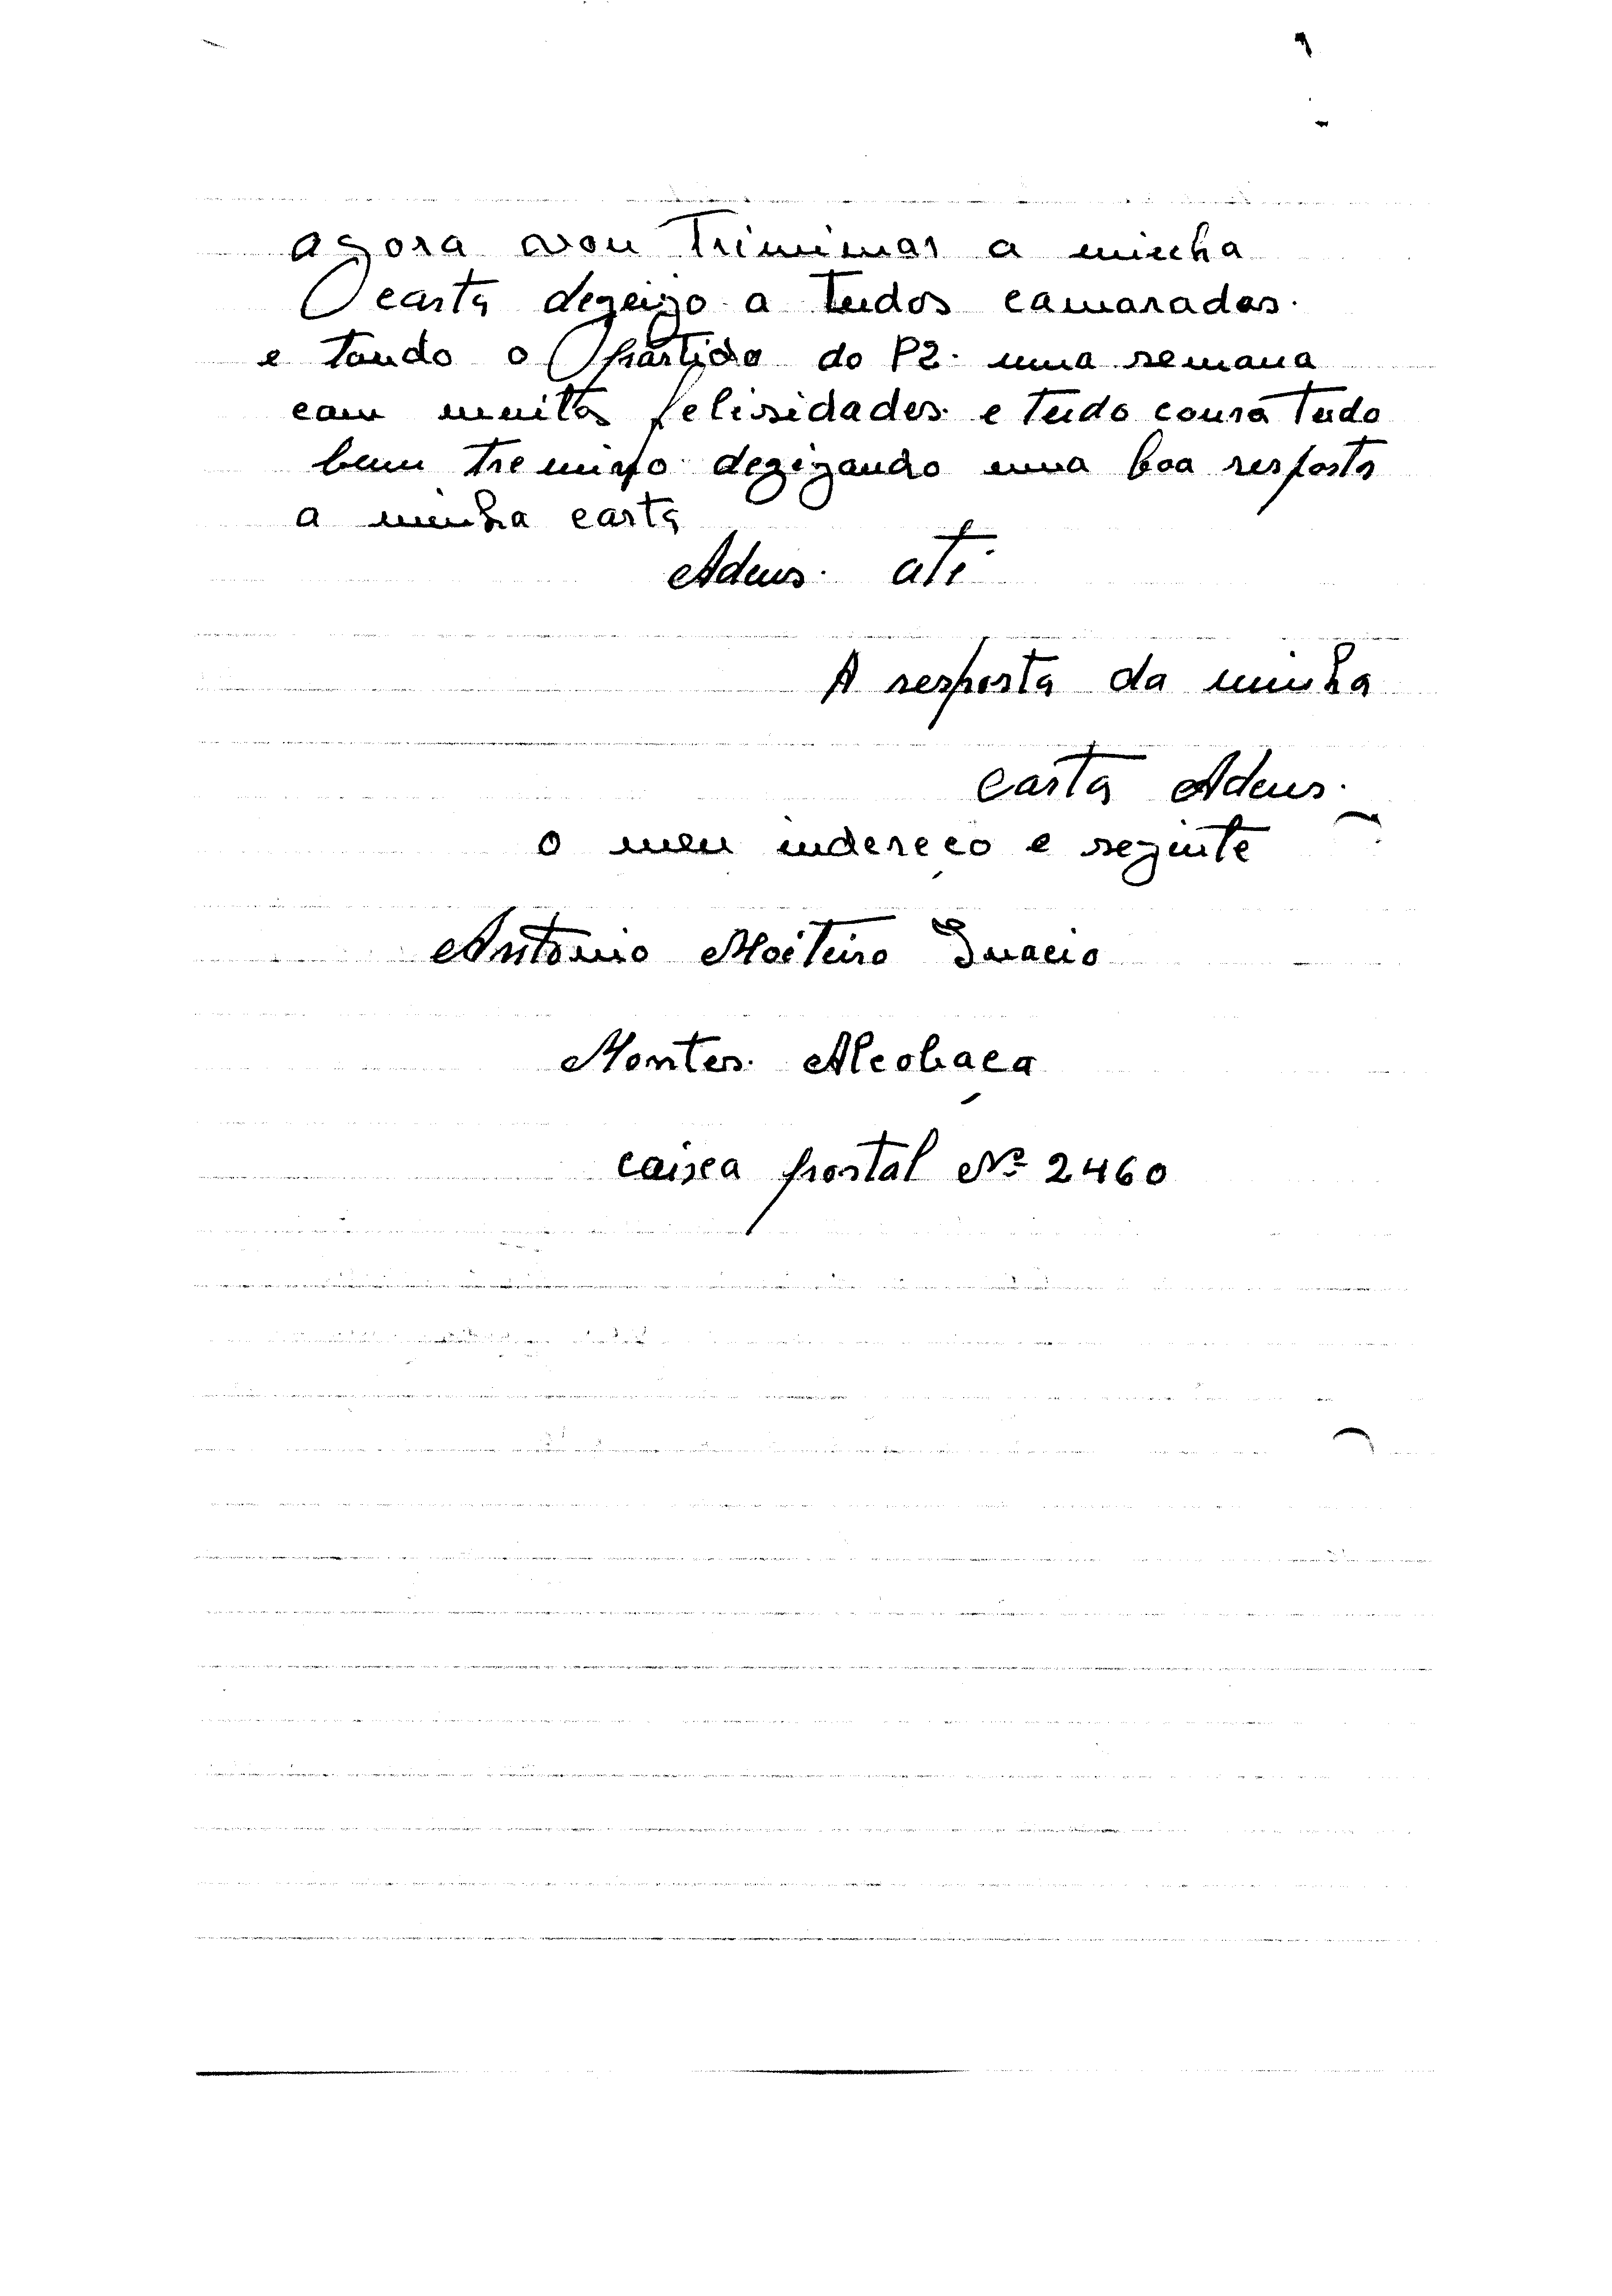 agora vou Triminar a minha
carta dezeizo a tudos camaradas.
e toudo o partido do P2. uma semana
cam muitas felisidades. e tudo coura tudo
bam tremino dezizando uma boa resposta
a minha carta
Adeus. ati
A resposta da minha
carta Adeus.
o meu indereço e seginte
Antonio Moiteiro Inacio
Montes. Alcobaça
caixa postal Nº 2460